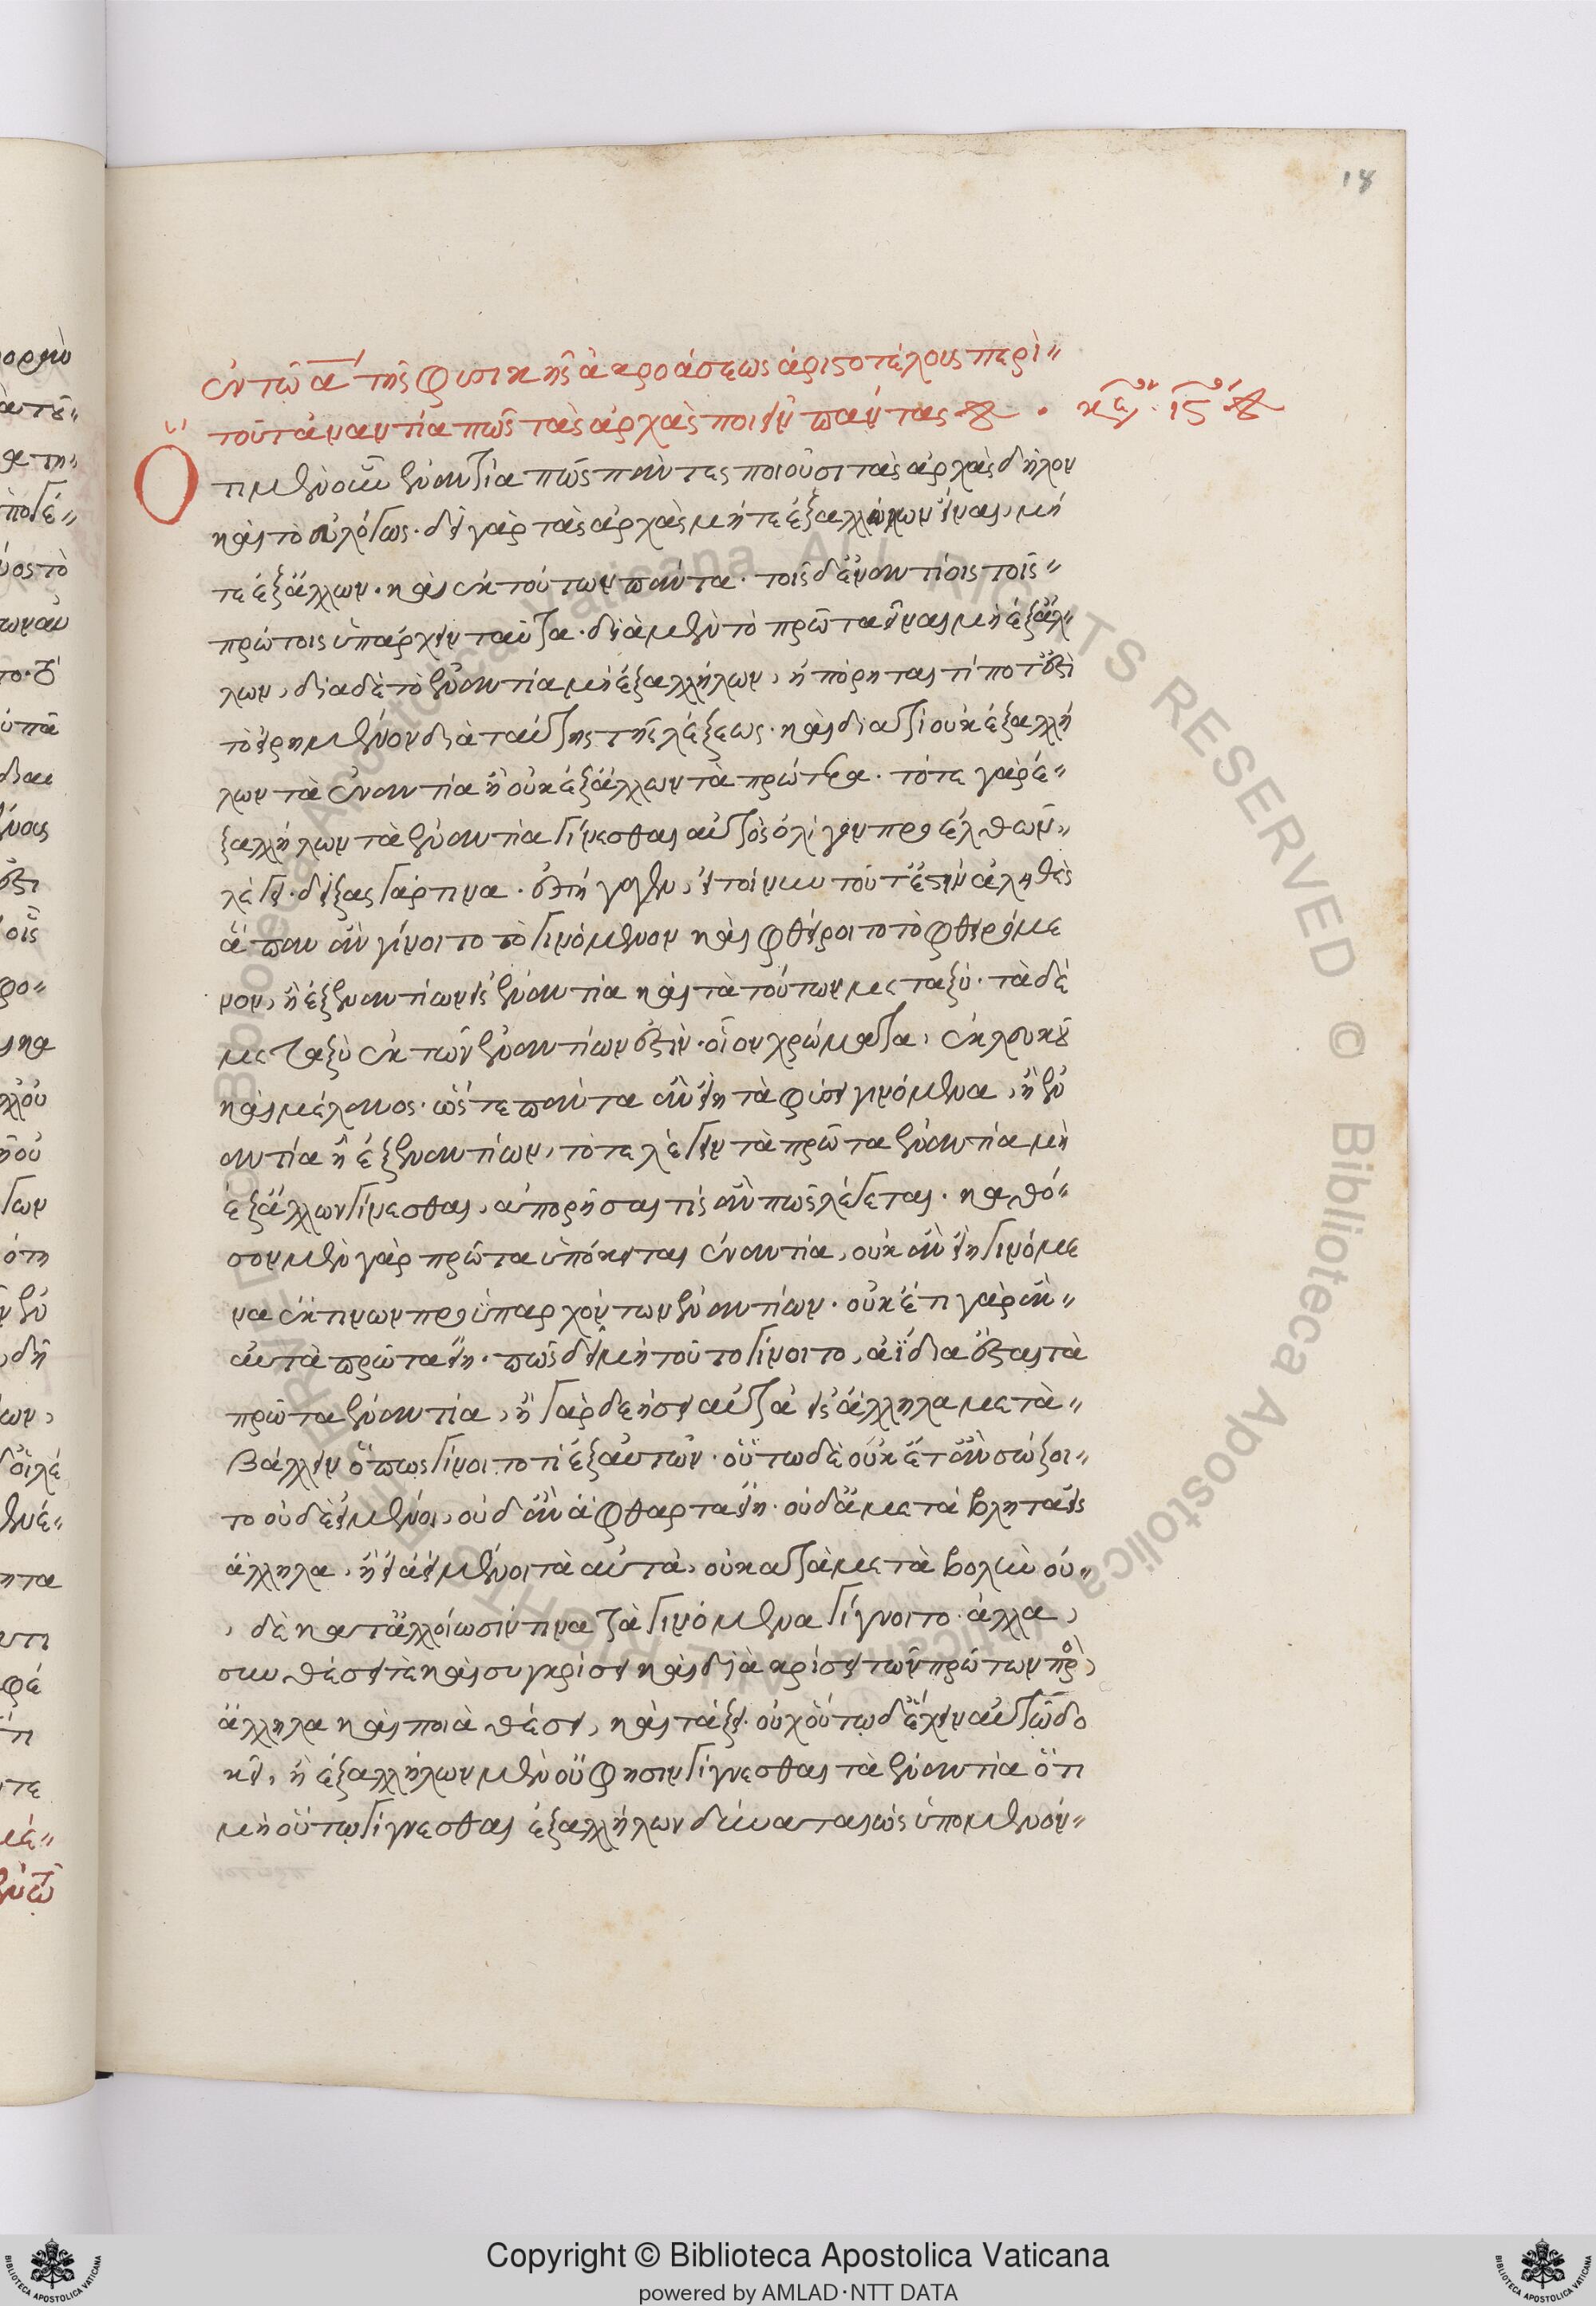 18
ἐν τῶ α΄ τῆς φυσικῆς ἀκροάσεως ἀριστοτέλους περὶ
τοῦ τἀναντία πῶς τὰς ἀρχὰς ποιεῖν πάντας · κεφ ιϛον
Ὅτι μὲν οὖν ἐναντία πῶς πάντες ποιοῦσι τὰς ἀρχὰς δῆλον
καὶ τὸ εὐλόγως· δεῖ γὰρ τὰς ἀρχὰς μήτε ἐξ ἀλλήλων εἶναι, μή
τε ἐξ ἄλλων. καὶ ἐκ τούτων πάντα. τοῖς δ' ἐναντίοις τοῖς
πρώτοις ὑπάρχειν ταῦτα. διὰ μὲν τὸ πρῶτα εἶναι μὴ ἐξ ἄλ
λων, διὰ δὲ τὸ ἐναντία μὴ ἐξ ἀλλήλων, ἠπόρηται τί ποτ' ἐστὶ
τὸ εἰρημένον διὰ ταύτης τῆς λέξεως. καὶ διατί οὐκ ἐξ ἀλλή
λων τὰ ἐναντία ἢ οὐκ ἐξ ἄλλων τὰ πρώτερα. τότε γὰρ ἐ
ξ ἀλλήλων τὰ ἐναντία γίνεσθαι αὐτὸς ὀλίγον προελθὼν
λέγει. δείξας γάρ τινα. ἐπήγαγεν, εἰ τοίνυν τοῦτ' ἐστὶν ἀληθὲς
ἅπαν ἂν γίνοιτο τὸ γινόμενον καὶ φθείροιτο τὸ φθειρόμε
νον, ἢ ἐξ ἐναντίων εἰς ἐναντία καὶ τὰ τούτων μεταξύ. τὰ δὲ
μεταξὺ ἐκ τῶν ἐναντίων ἐστὶν. οἷον χρώματα, ἐκ λευκοῦ
καὶ μέλανος. ὥστε πάντα ἂν εἴη τὰ φύσει γινόμενα, ἢ ἐν
αντία ἢ ἐξ ἐναντίων, τότε λέγειν τὰ πρῶτα ἐναντία μὴ
ἐξ ἄλλων γίνεσθαι, ἀπορήσαι τὶς ἂν πῶς λέγεται. καθό
σον μὲν γὰρ πρῶτα ὑπόκειται ἐναντία, οὐκ ἂν εἴη γινόμε
να ἔκ τινων προϋπαρχόντων ἐναντίων. οὐκέτι γὰρ ἂν
αὐτὰ πρῶτα εἴη. πῶς δ' εἰ μὴ τοῦτο γίνοιτο, ἀΐδια ἔσται τὰ
πρῶτα ἐναντία, ἢ γὰρ δεήσει αὐτὰ εἰς ἄλληλα μετα
βάλλειν ὅπως γίνοιτο τὶ ἐξ αὐτῶν. οὕτω δὲ οὐκέτ' ἂν σώζοι
το οὐδὲ εἰ μένοι, οὐδ' ἂν ἄφθαρτα εἴη. οὐδ' ἀμετάβλητα εἰς
ἄλληλα, ἢ εἰ ἀεὶ μένοι τὰ αὐτὰ, οὐ κατὰ μεταβολὴν οὐ
δὲ κατ' ἀλλοίωσίν τινα τὰ γινόμενα γίγνοιτο. ἀλλὰ
συνθέσει τὲ καὶ συγκρίσει καὶ διακρίσει τῶν πρώτων πρὸς
ἄλληλα καὶ ποιᾶ θέσει, καὶ τάξει. οὐχ οὕτω δ' ἔχειν αὐτῶ δο
κεῖ, ἢ ἐξ ἀλλήλων μὲν οὔ φησιν γίγνεσθαι τὰ ἐναντία ὅτι
μὴ οὕτω γίγνεσθαι ἐξ ἀλλήλων δύναται ὡς ὑπομένον
Copyright © Biblioteca Apostolica Vaticana
powered by AMLAD·NTT DATA